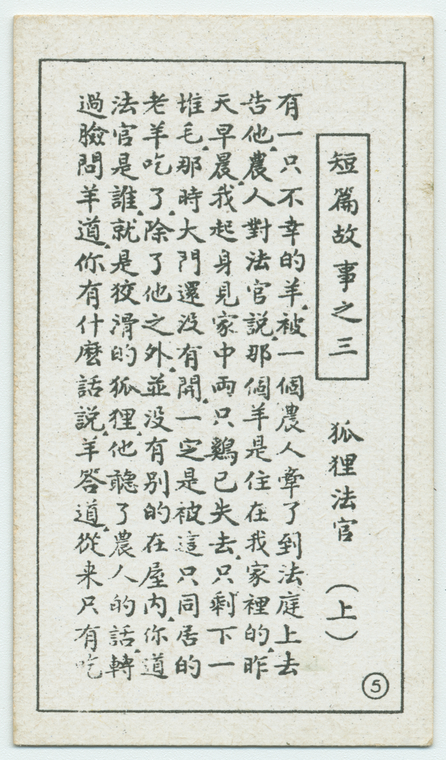 短篇故事之三
狐狸法官 (上)
有一只不幸的羊、被一個農人牽了到法庭上去
告他、農人對法官説、那個羊是住在我家裡的、昨
天早晨、我起身見家中両只鷄已失去、只剩下一
堆毛、那時大門還没有開、一定是被這只同居的
老羊吃了、除了他之外、並没有别的在屋内、你道
法官是誰、就是狡滑的狐狸、他聽了農人的話、轉
過臉問羊道、你有什麽話說、羊答道、從来只有吃
5